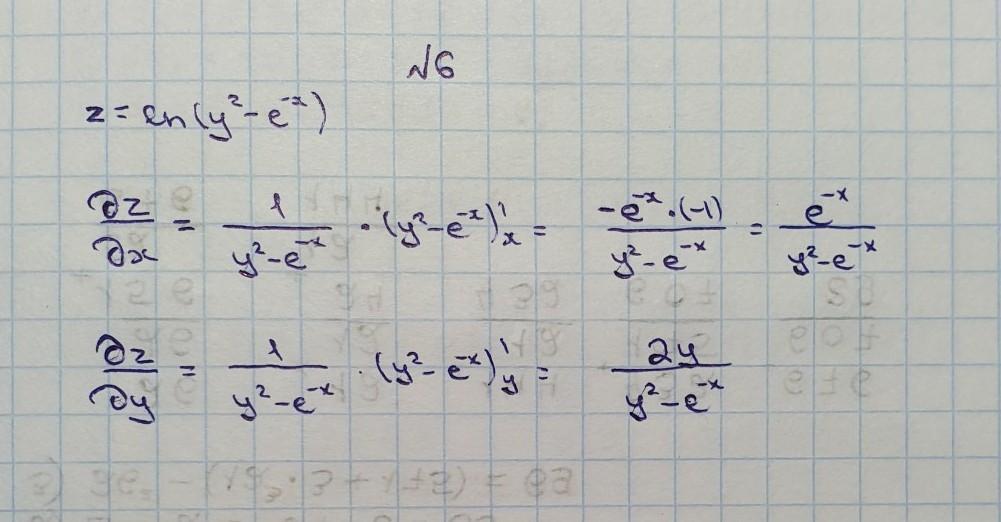 №6
z = ln(y² - e⁻ˣ)
∂z/∂x = 1/(y² - e⁻ˣ) · (y² - e⁻ˣ)'ₓ = (-e⁻ˣ · (-1))/(y² - e⁻ˣ) = e⁻ˣ/(y² - e⁻ˣ)
∂z/∂y = 1/(y² - e⁻ˣ) · (y² - e⁻ˣ)'ᵧ = 2y/(y² - e⁻ˣ)